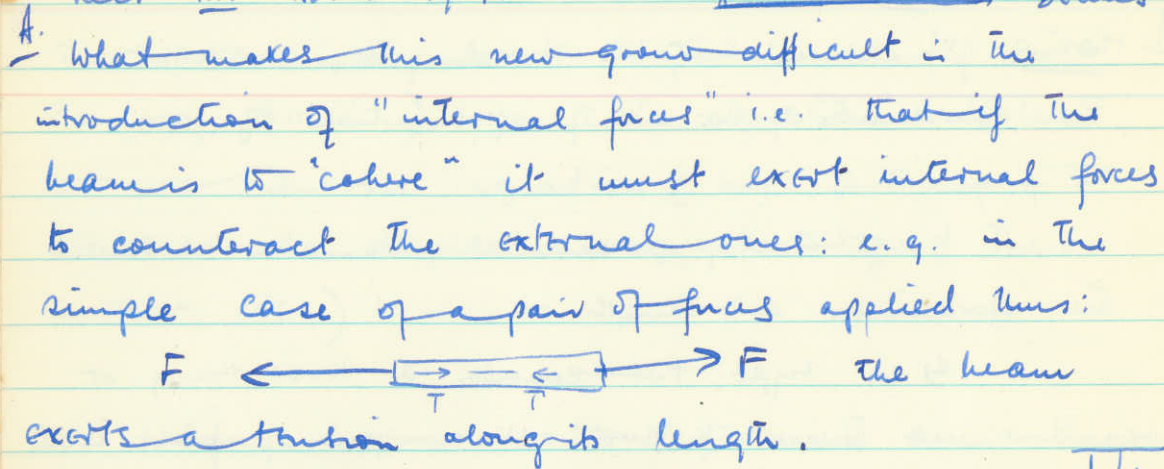 A. What makes this new group difficult is the
introduction of "internal forces" i.e. that if the
beam is to "cohere" it must exert internal forces
to counteract the external ones: e.g. in the
simple case of a pair of forces applied thus:
F F the beam
T T
exerts a tension along its length.